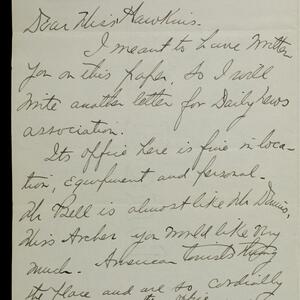 Dear Miss Hawkins.
I meant to have written
you on this paper, so I will
write another letter for Daily News
association.
Its office here is fine in loca-
tion, equipment and personal.
Mr Bell is almost like Mr Dennis,
Miss Archer you would like very
much. American tourists
the place and are so cordially